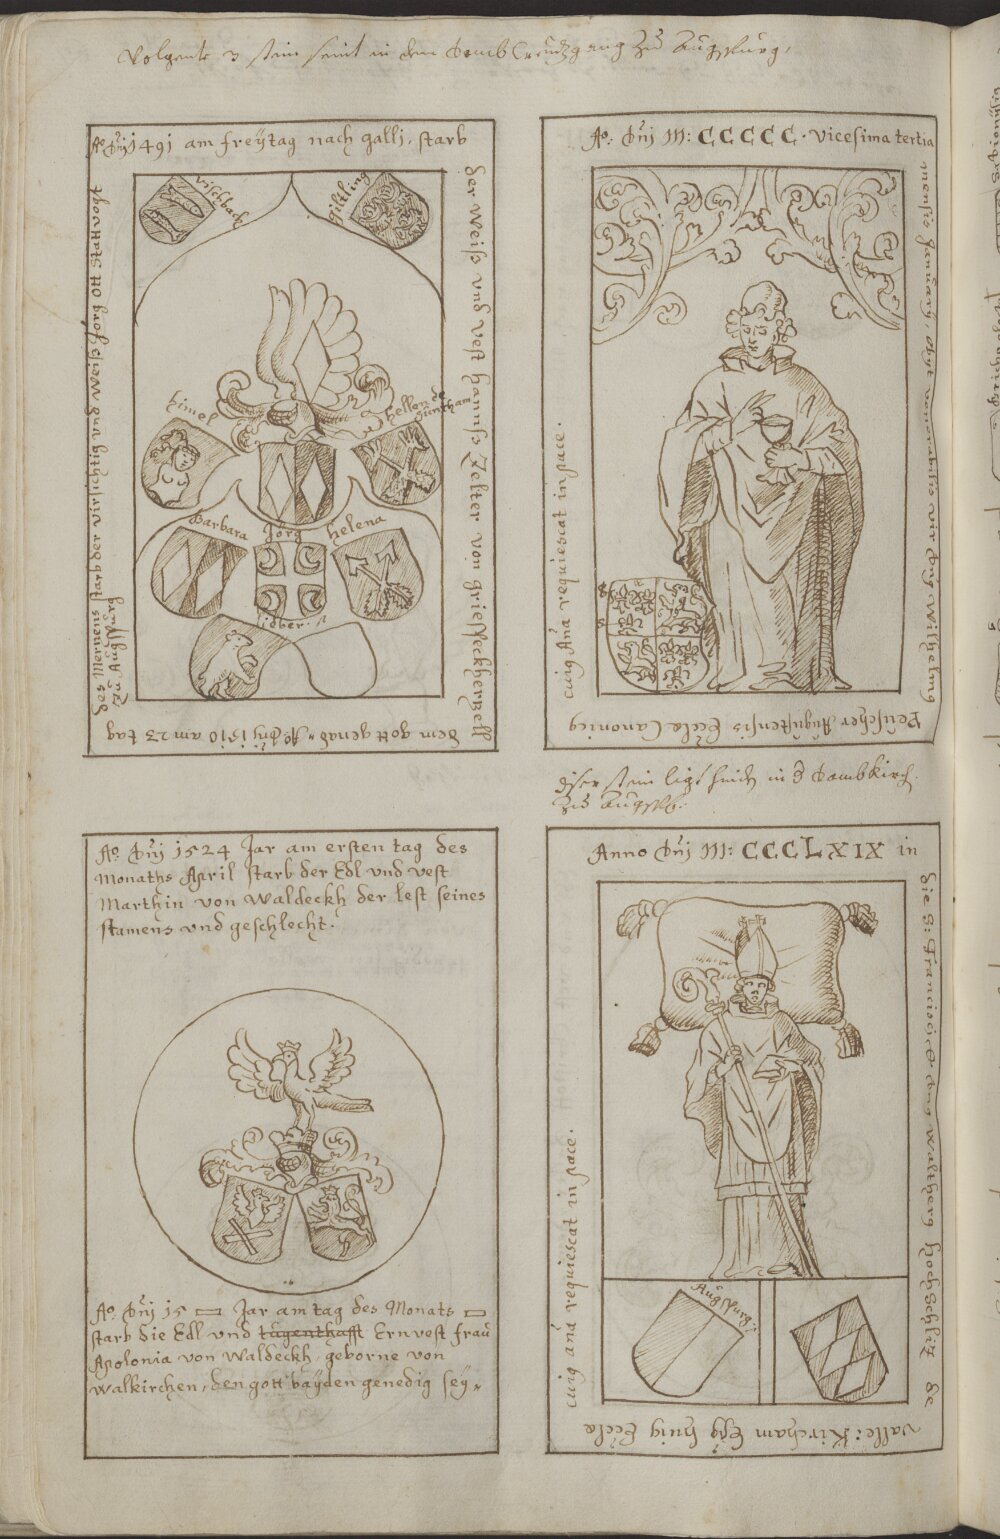 Volgente 3 stein seint in dem Dombkreuzgang Zů Augspurg,
Ao. Dnj 1491 am freÿtag nach gallj, starb
der Weiß vnd Vest Hannß Zelter von
dem gott genad Ao. Dnj 1510 am 23 tag
des Mernens starb der virsichtig vnd Weiß Jörg Ott Stattvogt
Zů Augspurg
vischbach
giltling
himel
hellen de
Barbara
Jörg
Helena
Ao. Dnj M: CCCCC. Vicesima tertia
mensis Januarÿ, obÿt venerabilis vir Dnj Wilhelmg
Augustensis Eccle Canonicg
cuig Ana requiescat in pace.
S
S
diser stein ligt in d Dombkirch
Zů Augsp.
Ao. Dnj 1524 Jar am ersten tag des
Monaths April starb der Edl vnd vest
Marthin von Waldeckh der lest seines
stamens vnd geschlecht.
Ao. Dnj 15 Jar am tag des Monats
starb die Edl vnd tůgenthafft Ernvest fraů
Apolonia von Waldeckh, geborne von
Walkirchen, den gott baÿden genedig seÿ
Anno Dnj M: CCCLXIX in
die S: Francisci Dng Waltherg Hochschliz de
Valle: Kircham Epg huig Eccle
cuig ana requiescat in pace.
Augspurg